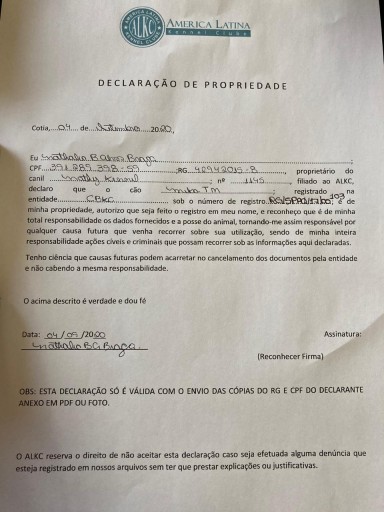 AMERICA LATINA
KENNEL CLUBE
ALKC
AMERICA LATINA
Kennel Clube
DECLARAÇÃO DE PROPRIEDADE
Cotia,....04.... de...Setembro.....2020,
Eu Nathalia B. Braga;
CPF........................;RG........................., proprietário do
canil ........................; nº ......1145......, filiado ao ALKC,
declaro que o cão ........................ registrado na
entidade........CBKC........ sob o número de registro.................., é de
minha propriedade, autorizo que seja feito o registro em meu nome, e reconheço que é de minha
total responsabilidade os dados fornecidos e a posse do animal, tornando-me assim responsável por
qualquer causa futura que venha recorrer sobre sua utilização, sendo de minha inteira
responsabilidade ações cíveis e criminais que possam recorrer sob as informações aqui declaradas.
Tenho ciência que causas futuras podem acarretar no cancelamento dos documentos pela entidade
e não cabendo a mesma responsabilidade.
O acima descrito é verdade e dou fé
Data: 04/09/2020 Assinatura:
Nathalia B Braga.
(Reconhecer Firma)
OBS: ESTA DECLARAÇÃO SÓ É VÁLIDA COM O ENVIO DAS CÓPIAS DO RG E CPF DO DECLARANTE
ANEXO EM PDF OU FOTO.
O ALKC reserva o direito de não aceitar esta declaração caso seja efetuada alguma denúncia que
esteja registrado em nossos arquivos sem ter que prestar explicações ou justificativas.